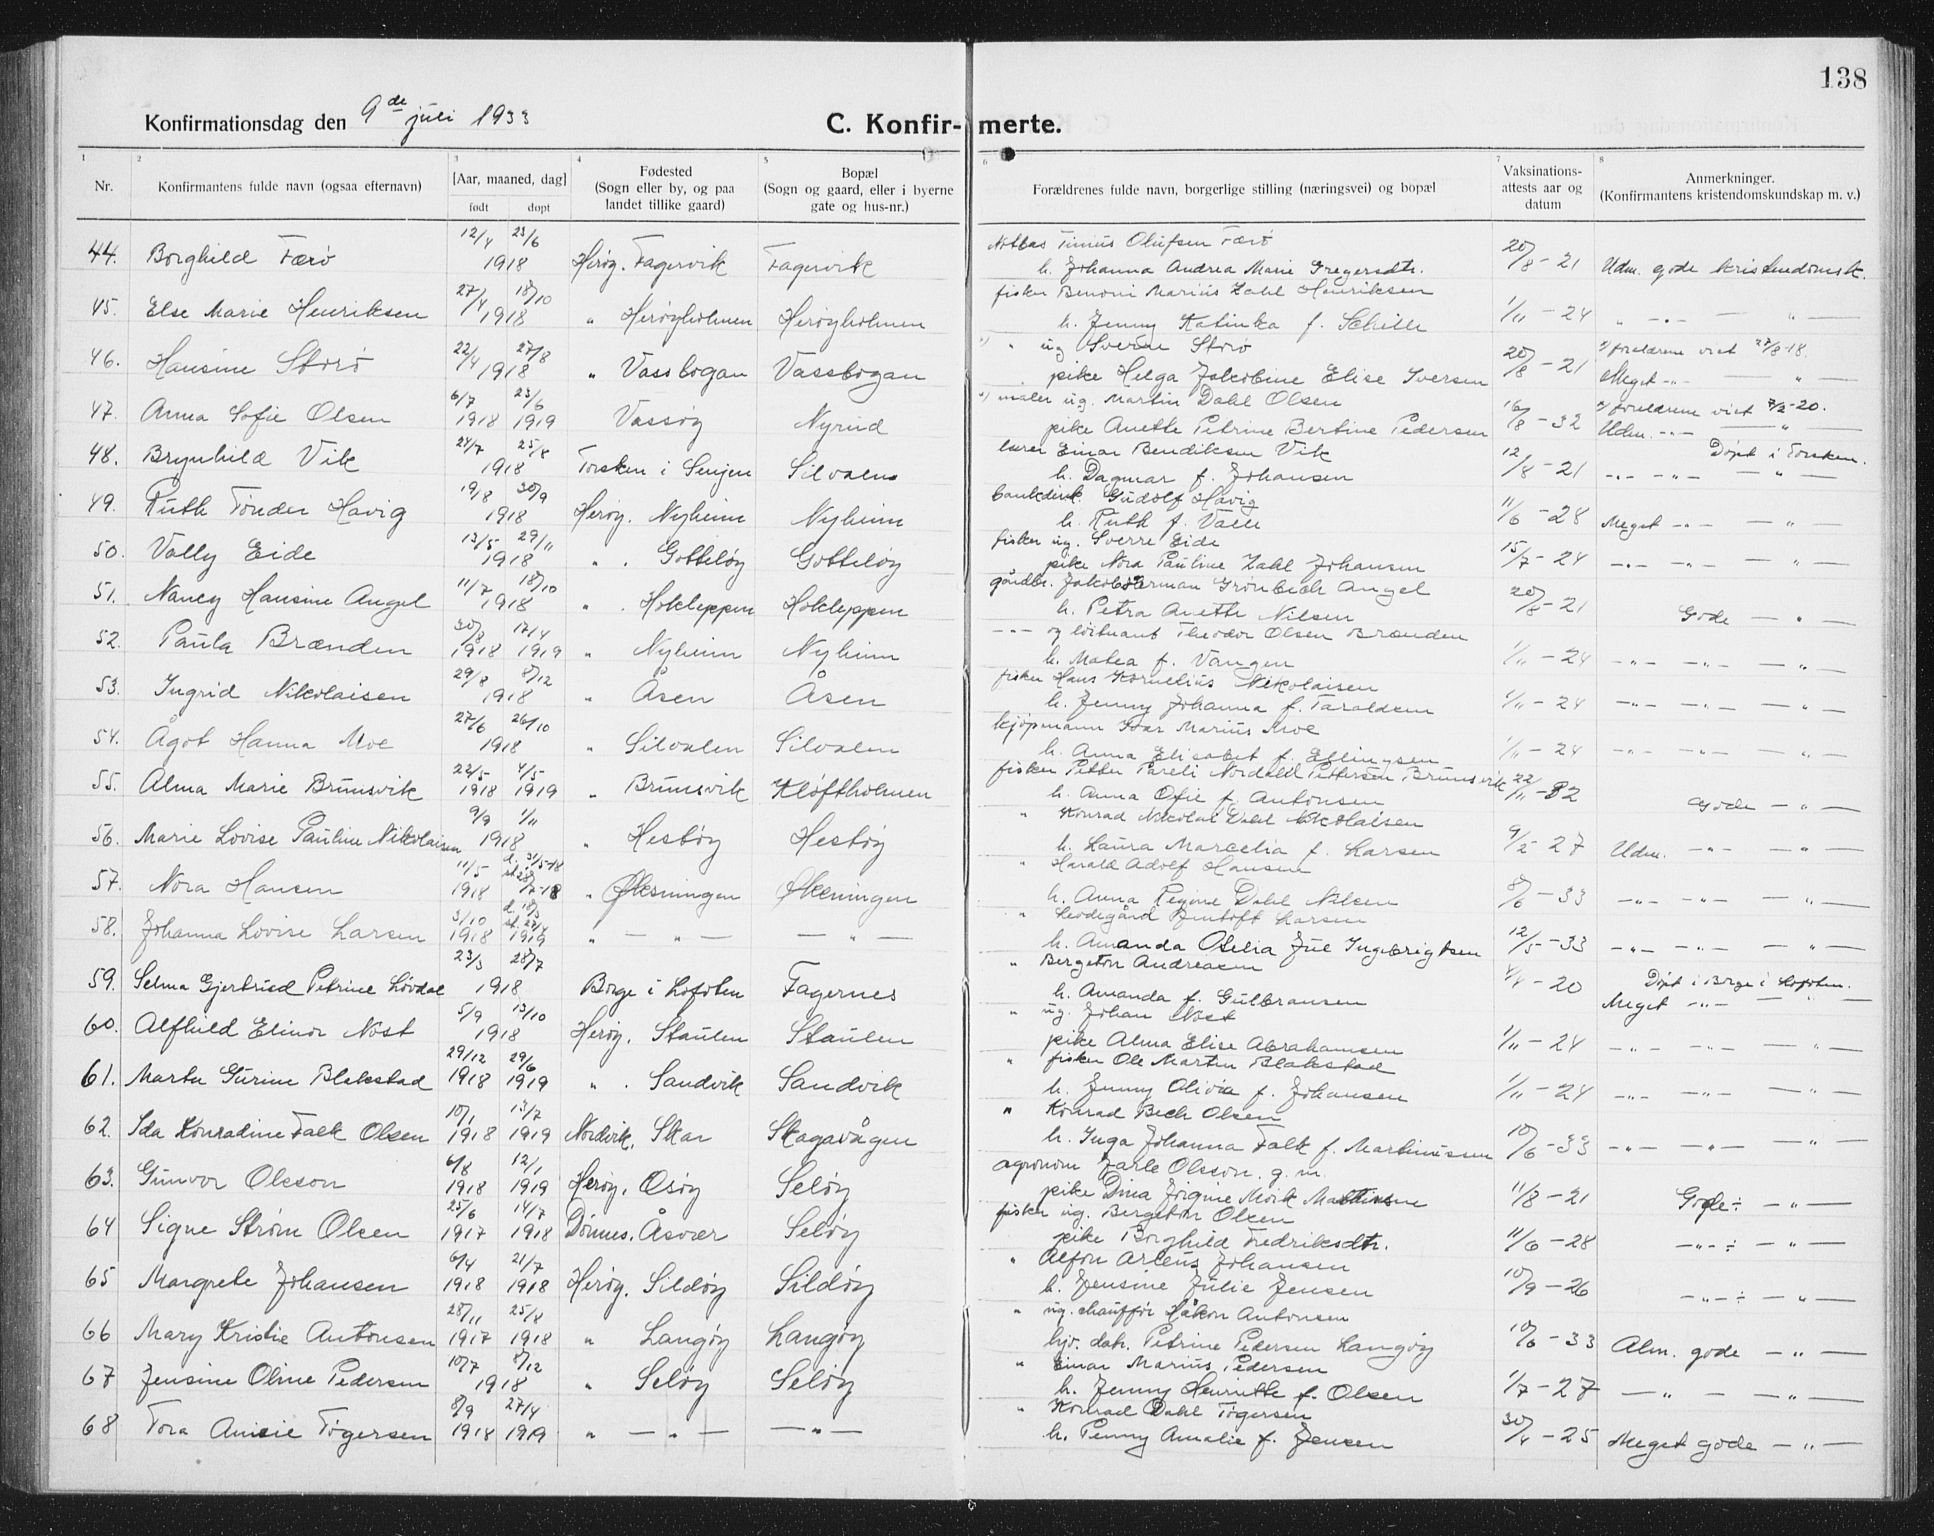 138
Konfirmationsdag den 9de juli 1933
C. Konfirmerte.
1 2 3 4 5 6 7 8
Nr. Konfirmantens fulde navn (ogsaa efternavn) [Aar, maaned, dag] født døpt Fødested (Sogn eller by, og paa landet tillike gaard) Bopæl (Sogn og gaard, eller i byerne gate og hus-nr.) Forældrenes fulde navn, borgerlige stilling (næringsvei) og bopæl Vaksinations-attests aar og datum Anmerkninger. (Konfirmantens kristendomskundskap m. v.)
44. Borghild Færø 12/4 23/6 1918 Herøy. Fagervik Fagervik Notbas Tinius Olufsen Færø h. Johanna Andrea Marie Gregersdtr. 20/8-21 Udm. gode kristendomsk.
45. Else Marie Henriksen 27/4 18/10 1918 " Herøyholmen Herøyholmen fisker Benoni Marius Zahl Henriksen h. Jenny Katinka f. Schille 1/11-24 " -"- — " —
46. Hansine Storø 22/4 27/8 1918 " Vassbogan Vassbogan " ug Sverre Storø pike Helga Jakobine Elise Iversen 20/8-21 foreldrene viet 27/8-18. Meget -"- — " —
47. Anna Sofie Olsen 6/7 23/6 1918 1919 Vassøy Nyrud maler ug. Martin Dahl Olsen pike Anette Petrine Bertine Pedersen 16/8-32 foreldrene viet 7/2-20. Udm. -"- — " —
48. Brynhild Vik 24/7 25/8 1918 Torsken i Senjen Silvalen lærer Einar Bendiksen Vik h. Dagmar f. Johansen 12/8-21 Døpt i Torsken. -"- -"- — " —
49. Ruth Tønder Havig 19/8 30/9 1918 Herøy. Nyheim Nyheim bankdirk. Gudolf Havig h. Ruth f. Valle 11/6-28 Meget -"- — " —
50. Vally Eide 13/5 29/11 1918 " . Gotteløy Gotteløy fisker ug. Sverre Eide pike Nora Pauline Zahl Johansen 15/7-24 -"- -"- — " —
51. Nancy Hansine Angel 11/7 18/10 1918 " . Hokleppen Hokleppen gårdbr. Jakob Herman Grønbech Angel h. Petra Anette Nilsen 20/8-21 Gode — " —
52. Paula Brænden 30/8 17/4 1918 1919 " Nyheim Nyheim -"- og løitnant Theodor Olsen Brænden h. Matea f. Vangen 1/11-24 -"- -"- — " —
53. Ingrid Nikolaisen 29/8 8/12 1918 " Åsen Åsen fisker Hans Kornelius Nikolaisen h. Jenny Johanna f. Taraldsen 1/11-24 -"- -"- — " —
54. Ågot Hanna Moe 27/6 26/10 1918 " Silvalen Silvalen kjøpmann Ivar Marius Moe h. Anna Elisabet f. Ellingsen 1/11-24 -"- -"- — " —
55. Alma Marie Brunsvik 22/5 4/5- 1918 1919 " Brunsvik Kløftholmen fisker Petter Pareli Nordahl Pettersen Brunsvik h. Anna Ofie f. Antonsen 22/11-32 Gode — " —
56. Marie Lovise Pauline Nikolaisen 9/9 1/11 1918 " Hestøy Hestøy " Konrad Nikolai Dahl Nikolaisen h. Laura Marcelia f. Larsen 9/2-27 Udm. -"- — " —
57. Nora Hansen 11/5- 1918 d. 31/5-18 " Øksningen Øksningen " Harald Adolf Hansen h. Anna Regine Dahl Nilsen 8/6-33 -"- -"- — " —
58. Johanna Lovise Larsen 3/10 1918 1919 " — " — — " — " Leodegård Bentoft Larsen h. Amanda Otelia Jul Ingebrigtsen 12/5-33 -"- -"- — " —
59. Selma Gjertrud Petrine Lovdal 23/3 28/7 1918 Borge i Lofoten Fagernes " Bergeton Andreasen h. Amanda f. Gulbransen -20 Døpt i Borge i Lofoten. Meget -"- — " —
60. Alfhild Elinor Nøst 5/9 13/10 1918 Herøy. Staulen Staulen " ug. Johan Nøst pike Alma Elise Abrahamsen 1/11-24 -"- -"- — " —
61. Marta Gurine Blakstad 29/12 29/6 1918 1919 " . Sandvik Sandvik " fisker Ole Martin Blakstad h. Jenny Olivia f. Johansen 1/11-24 -"- -"- — " —
62. Ida Konradine Falk Olsen 10/1 13/7 1918 1919 Nordvik, Skar Skagavågen " Konrad Bech Olsen h. Inga Johanna Falk f. Martinussen 10/6-33 -"- -"- — " —
63. Gunvor Olsson 6/8 12/1 1918 1919 Herøy, Osøy Seløy agronom Jarle Olsson. g. m. pike Dina Jørgine Mørk Mathisen 11/8-21 Gode ÷ — " —
64 Signe Strøm Olsen 25/6 14/7 1917 1918 Dønnes, Åsvær Seløy fisker ug. Bergeton Olsen pike Borghild Fredriksdtr. 11/6-28 -"- ÷ — " —
65 Margrete Johansen 6/4 21/7 1918 1918 Herøy, Sildøy Sildøy " Alfon Arleus Johansen h. Jensine Julie Jensen 10/9-26 -"- ÷ — " —
66 Mary Kristie Antonsen 28/11 25/8 1917 1918 " Langøy Langøy " ug. chauffør Håkon Antonsen hjv. datr. Petrine Pedersen Langøy 10/6-33 Alm. gode — " —
67 Jensine Oline Pedersen 10/7 8/12 1918 " Seløy Seløy " Einar Marius Pedersen h. Jenny Henriette f. Olsen 1/7-27 — " — — " —
68 Tora Amsie Tøgersen 8/9 27/4 1918 1919 " — " — — " — " Konrad Dahl Tøgersen h. Penny Amalie f. Jensen 30/4-25 Meget gode — " —